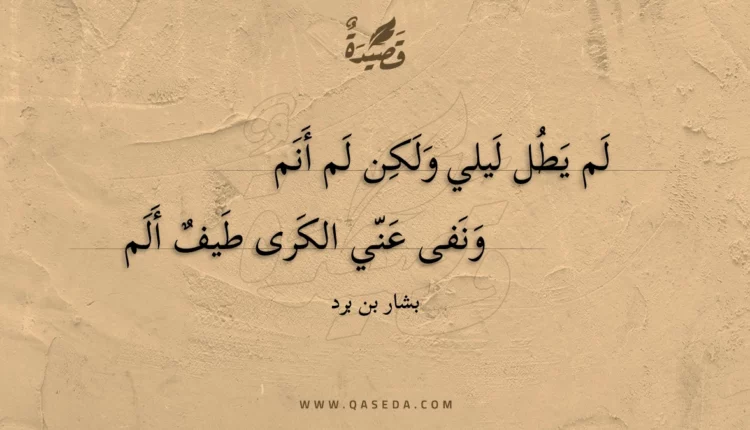 قَصِيدَةٌ
لَم يَطُل لَيلي وَلَكِن لَم أَنَم
وَنَفى عَنّي الكَرى طَيفٌ أَلَم
بشار بن برد
WWW.QASEDA.COM